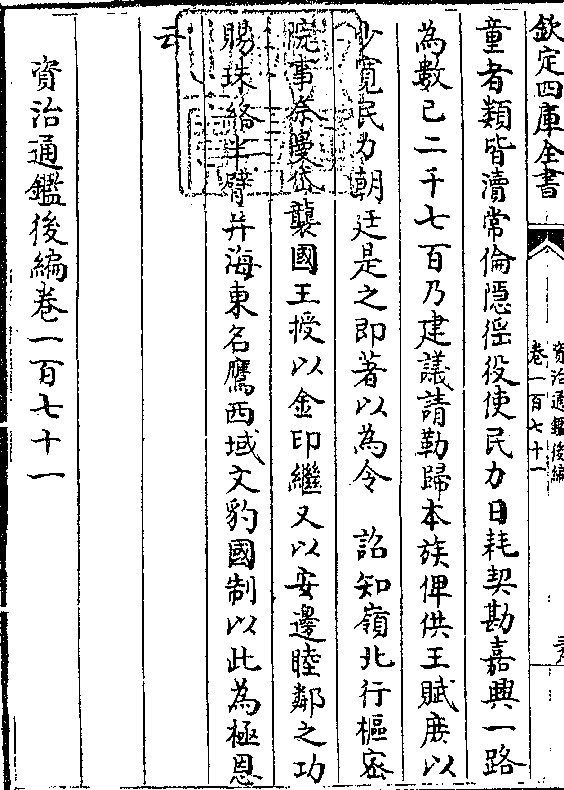 欽定四庫全書
資治通鑑後編
卷一百七十一
童者類皆瀆常倫隱徭役使民力日耗契勘嘉興一路
為數已二千七百乃建議請勒歸本族俾供王賦庶以
少寛民力朝廷是之即著以為令 詔知嶺北行樞密
院事柰曼岱襲國王授以金印繼又以安邊睦鄰之功
賜珠絡半臂并海東名鷹西域文豹國制以此為極恩
云
資治通鑑後編卷一百七十一